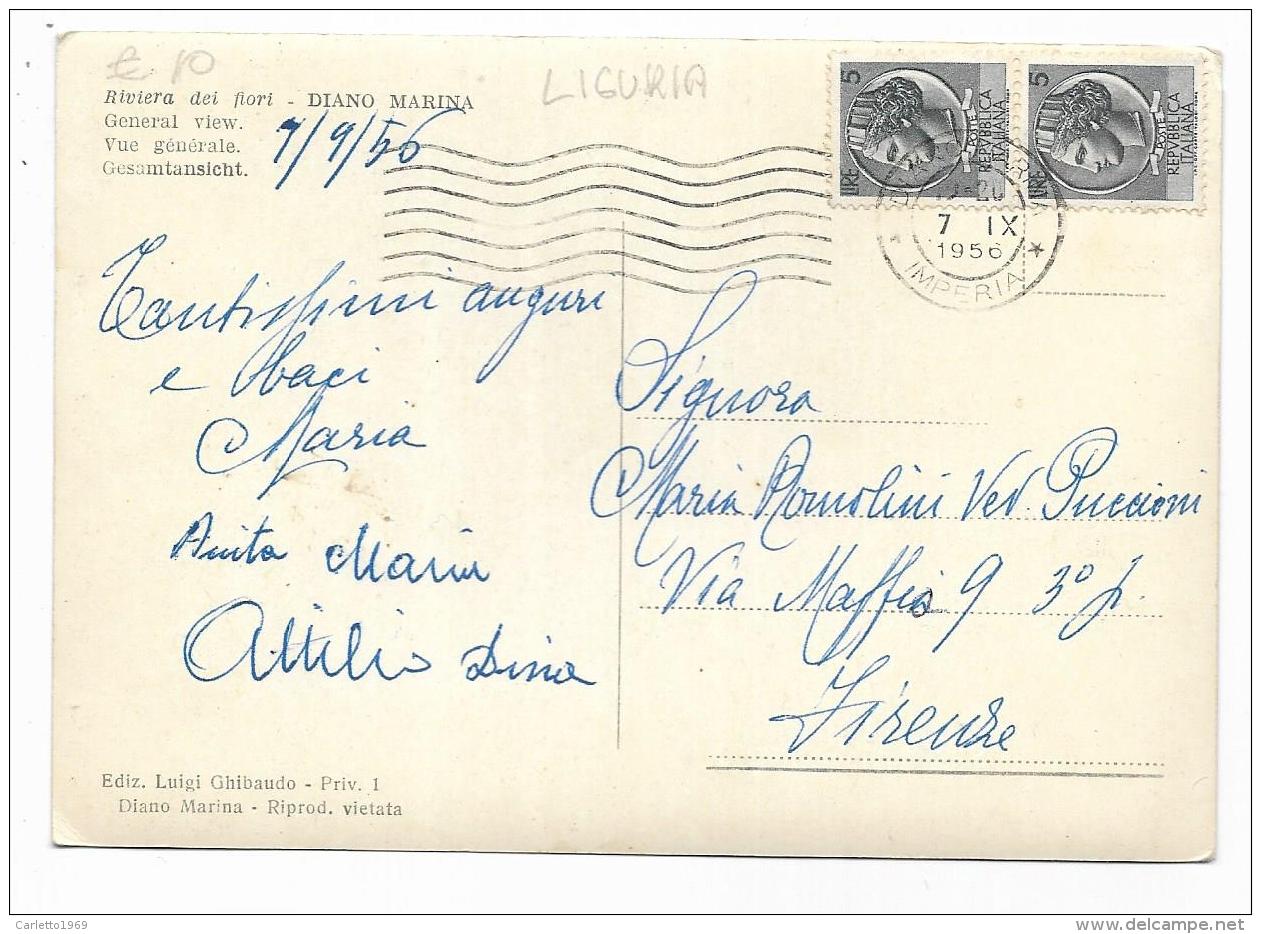 € 10
LIGURIA
Riviera dei fiori - DIANO MARINA
General view.
Vue générale.
Gesamtansicht.
7/9/56
5 LIRE
POSTE
REPVBBLICA
ITALIANA
5 LIRE
POSTE
REPVBBLICA
ITALIANA
7 IX
1956
IMPERIA
Tantissimi auguri
e baci
Maria
Anita Maria
Attilio Dina
Signora
Maria Romolini Ved. Puccioni
Via Maffia 9 3º p.
Firenze
Ediz. Luigi Ghibaudo - Priv. 1
Diano Marina - Riprod. vietata
Carletto1969
delcampe.net